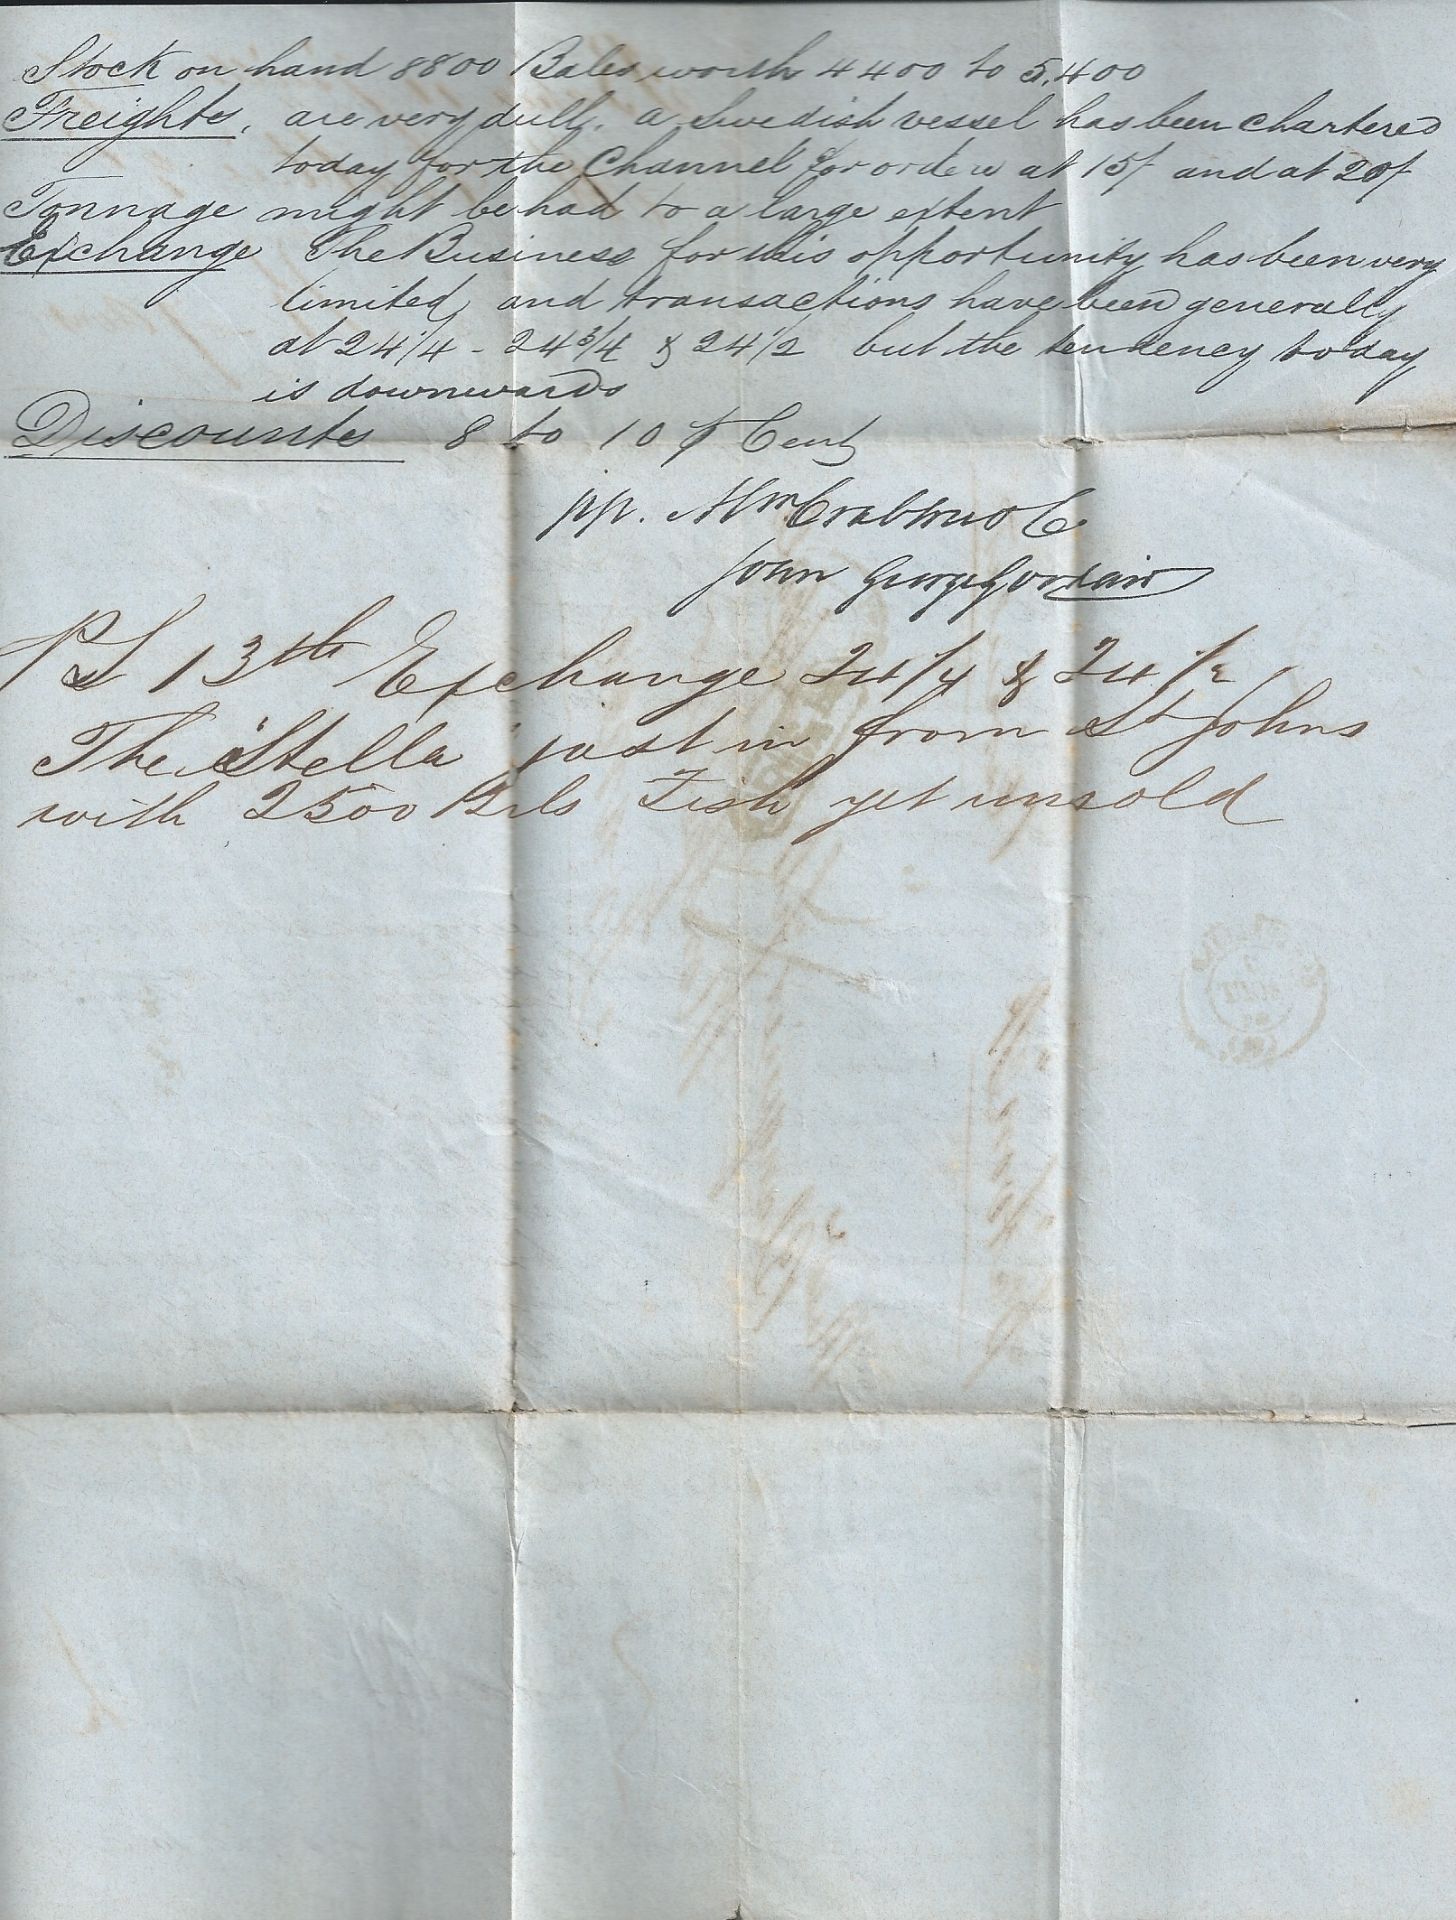 Stock on hand 8800 Bales worth 4400 to 5.400
Freights, are very dull, a Swedish vessel has been chartered
today for the Channel for orders at 15/ and at 20/
Tonnage might be had to a large extent
Exchange The Business for this opportunity has been very
limited, and transactions have been generally
at 24 1/4 - 24 3/4 & 24 1/2 but the tendency today
is downwards
Discounts 8 to 10 ⅌ Cent
pp. Wm Crabtree & Co
John George
PS 13th Exchange 24 1/4 & 24 1/2,
The "Stella" just in from St Johns
with 2500 Brls Fish yet unsold